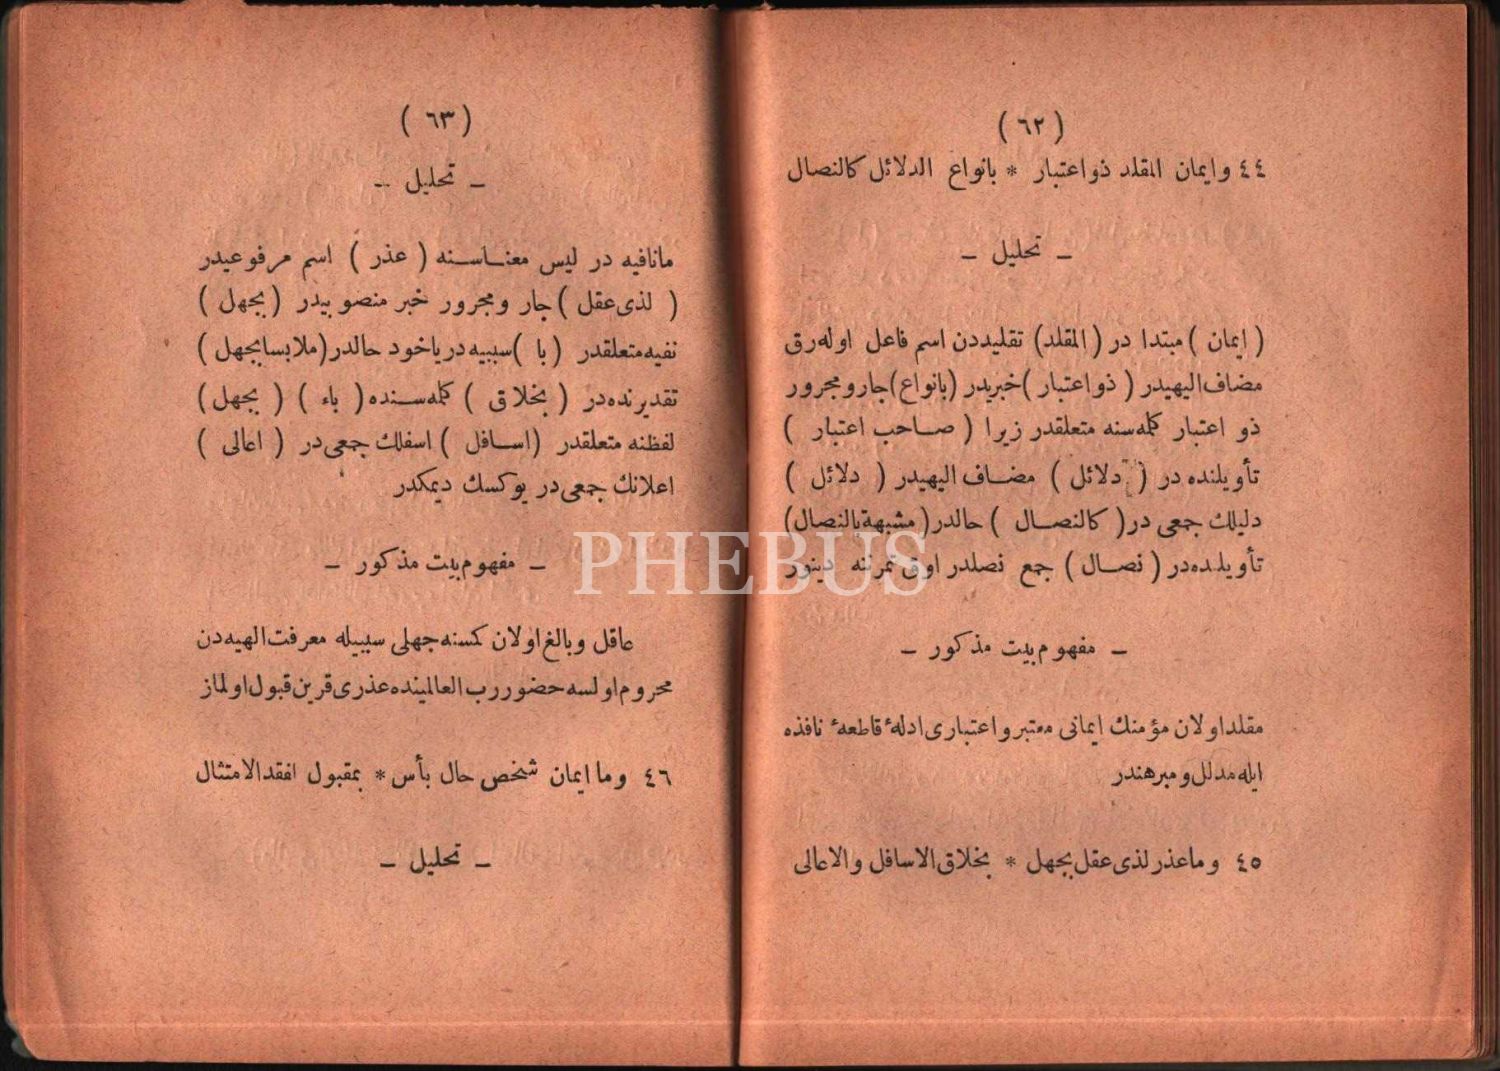 ( ٦٢ )
٤٤ وايمان المقلد ذو اعتبار * بانواع الدلائل كالنصال
ـ تحليل ـ
( ايمان ) مبتدا در ( المقلد ) تقليددن اسم فاعل اوله رق
مضاف اليهيدر ( ذو اعتبار ) خبريدر ( بانواع ) جار ومجرور
ذو اعتبار كلمه سنه متعلقدر زيرا ( صاحب اعتبار )
تأويلنده در ( دلائل ) مضاف اليهيدر ( دلائل )
دليلك جمعى در ( كالنصال ) حالدر ( مشبهة بالنصال )
تأويلنده در ( نصال ) جمع نصلدر اوق تمرننه دينور
ـ مفهوم بيت مذكور ـ
مقلد اولان مؤمنك ايمانى معتبر و اعتبارى ادلهٔ قاطعهٔ نافذه
ايله مدلل ومبرهندر
٤٥ وما عذر لذى عقل بجهل * بخلاق الاسافل والاعالى
( ٦٣ )
ـ تحليل ـ
ما نافيه در ليس معناسنه ( عذر ) اسم مرفوعيدر
( لذى عقل ) جار ومجرور خبر منصوبيدر ( بجهل )
نفيه متعلقدر ( با ) سببيه در ياخود حالدر ( ملابسا بجهل )
تقديرنده در ( بخلاق ) كلمه سنده ( باء ) ( بجهل )
لفظنه متعلقدر ( اسافل ) اسفلك جمعى در ( اعالى )
اعلانك جمعى در يوكسك ديمكدر
ـ مفهوم بيت مذكور ـ
عاقل وبالغ اولان كمسنه جهلى سببيله معرفت الهيه دن
محروم اولسه حضور رب العالمينده عذرى قرين قبول اولماز
٤٦ وما ايمان شخص حال بأس * بمقبول لفقد الامتثال
ـ تحليل ـ
PHEBUS